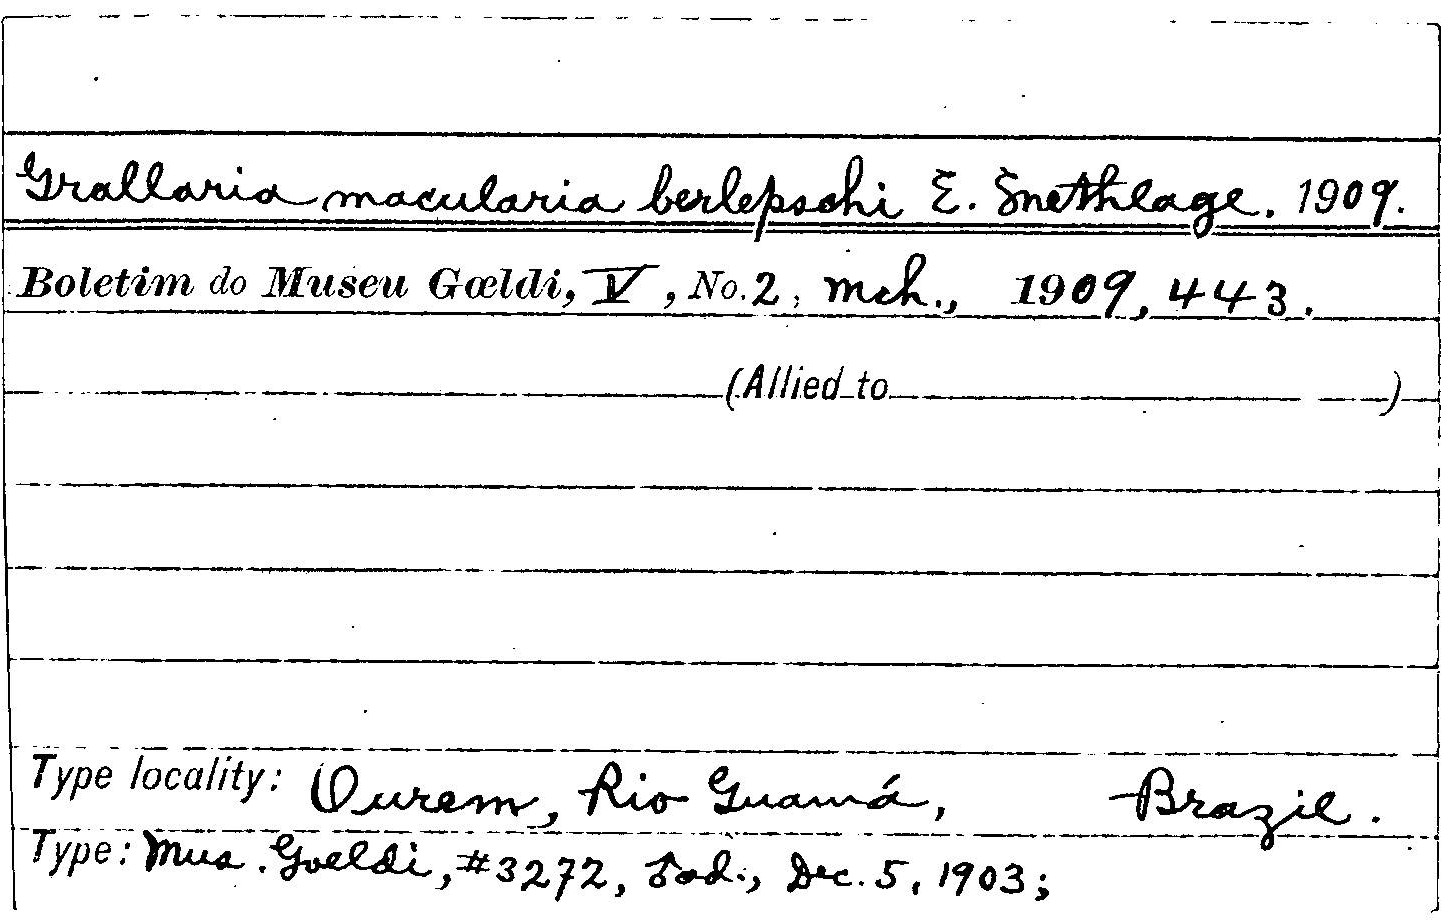 Grallaria macularia berlepschi E. Snethlage. 1909.
Boletim do Museu Gœldi, V, No. 2, Mch., 1909, 443.
(Allied to )
Type locality: Ourem, Rio Guamá, Brazil.
Type: Mus. Goeldi, #3272, ad., Dec. 5, 1903;